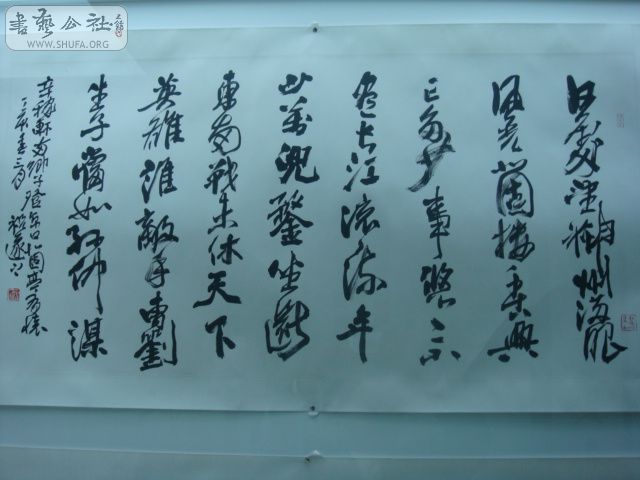 書藝公社
WWW.SHUFA.ORG
何處望神州滿眼
風光北固樓千古興
亡多少事悠悠不
盡長江滾滾流年
少萬兜鍪坐斷
東南戰未休天下
英雄誰敵手曹劉
生子當如孫仲謀
辛稼軒南鄉子登京口北固亭有懷
春三月